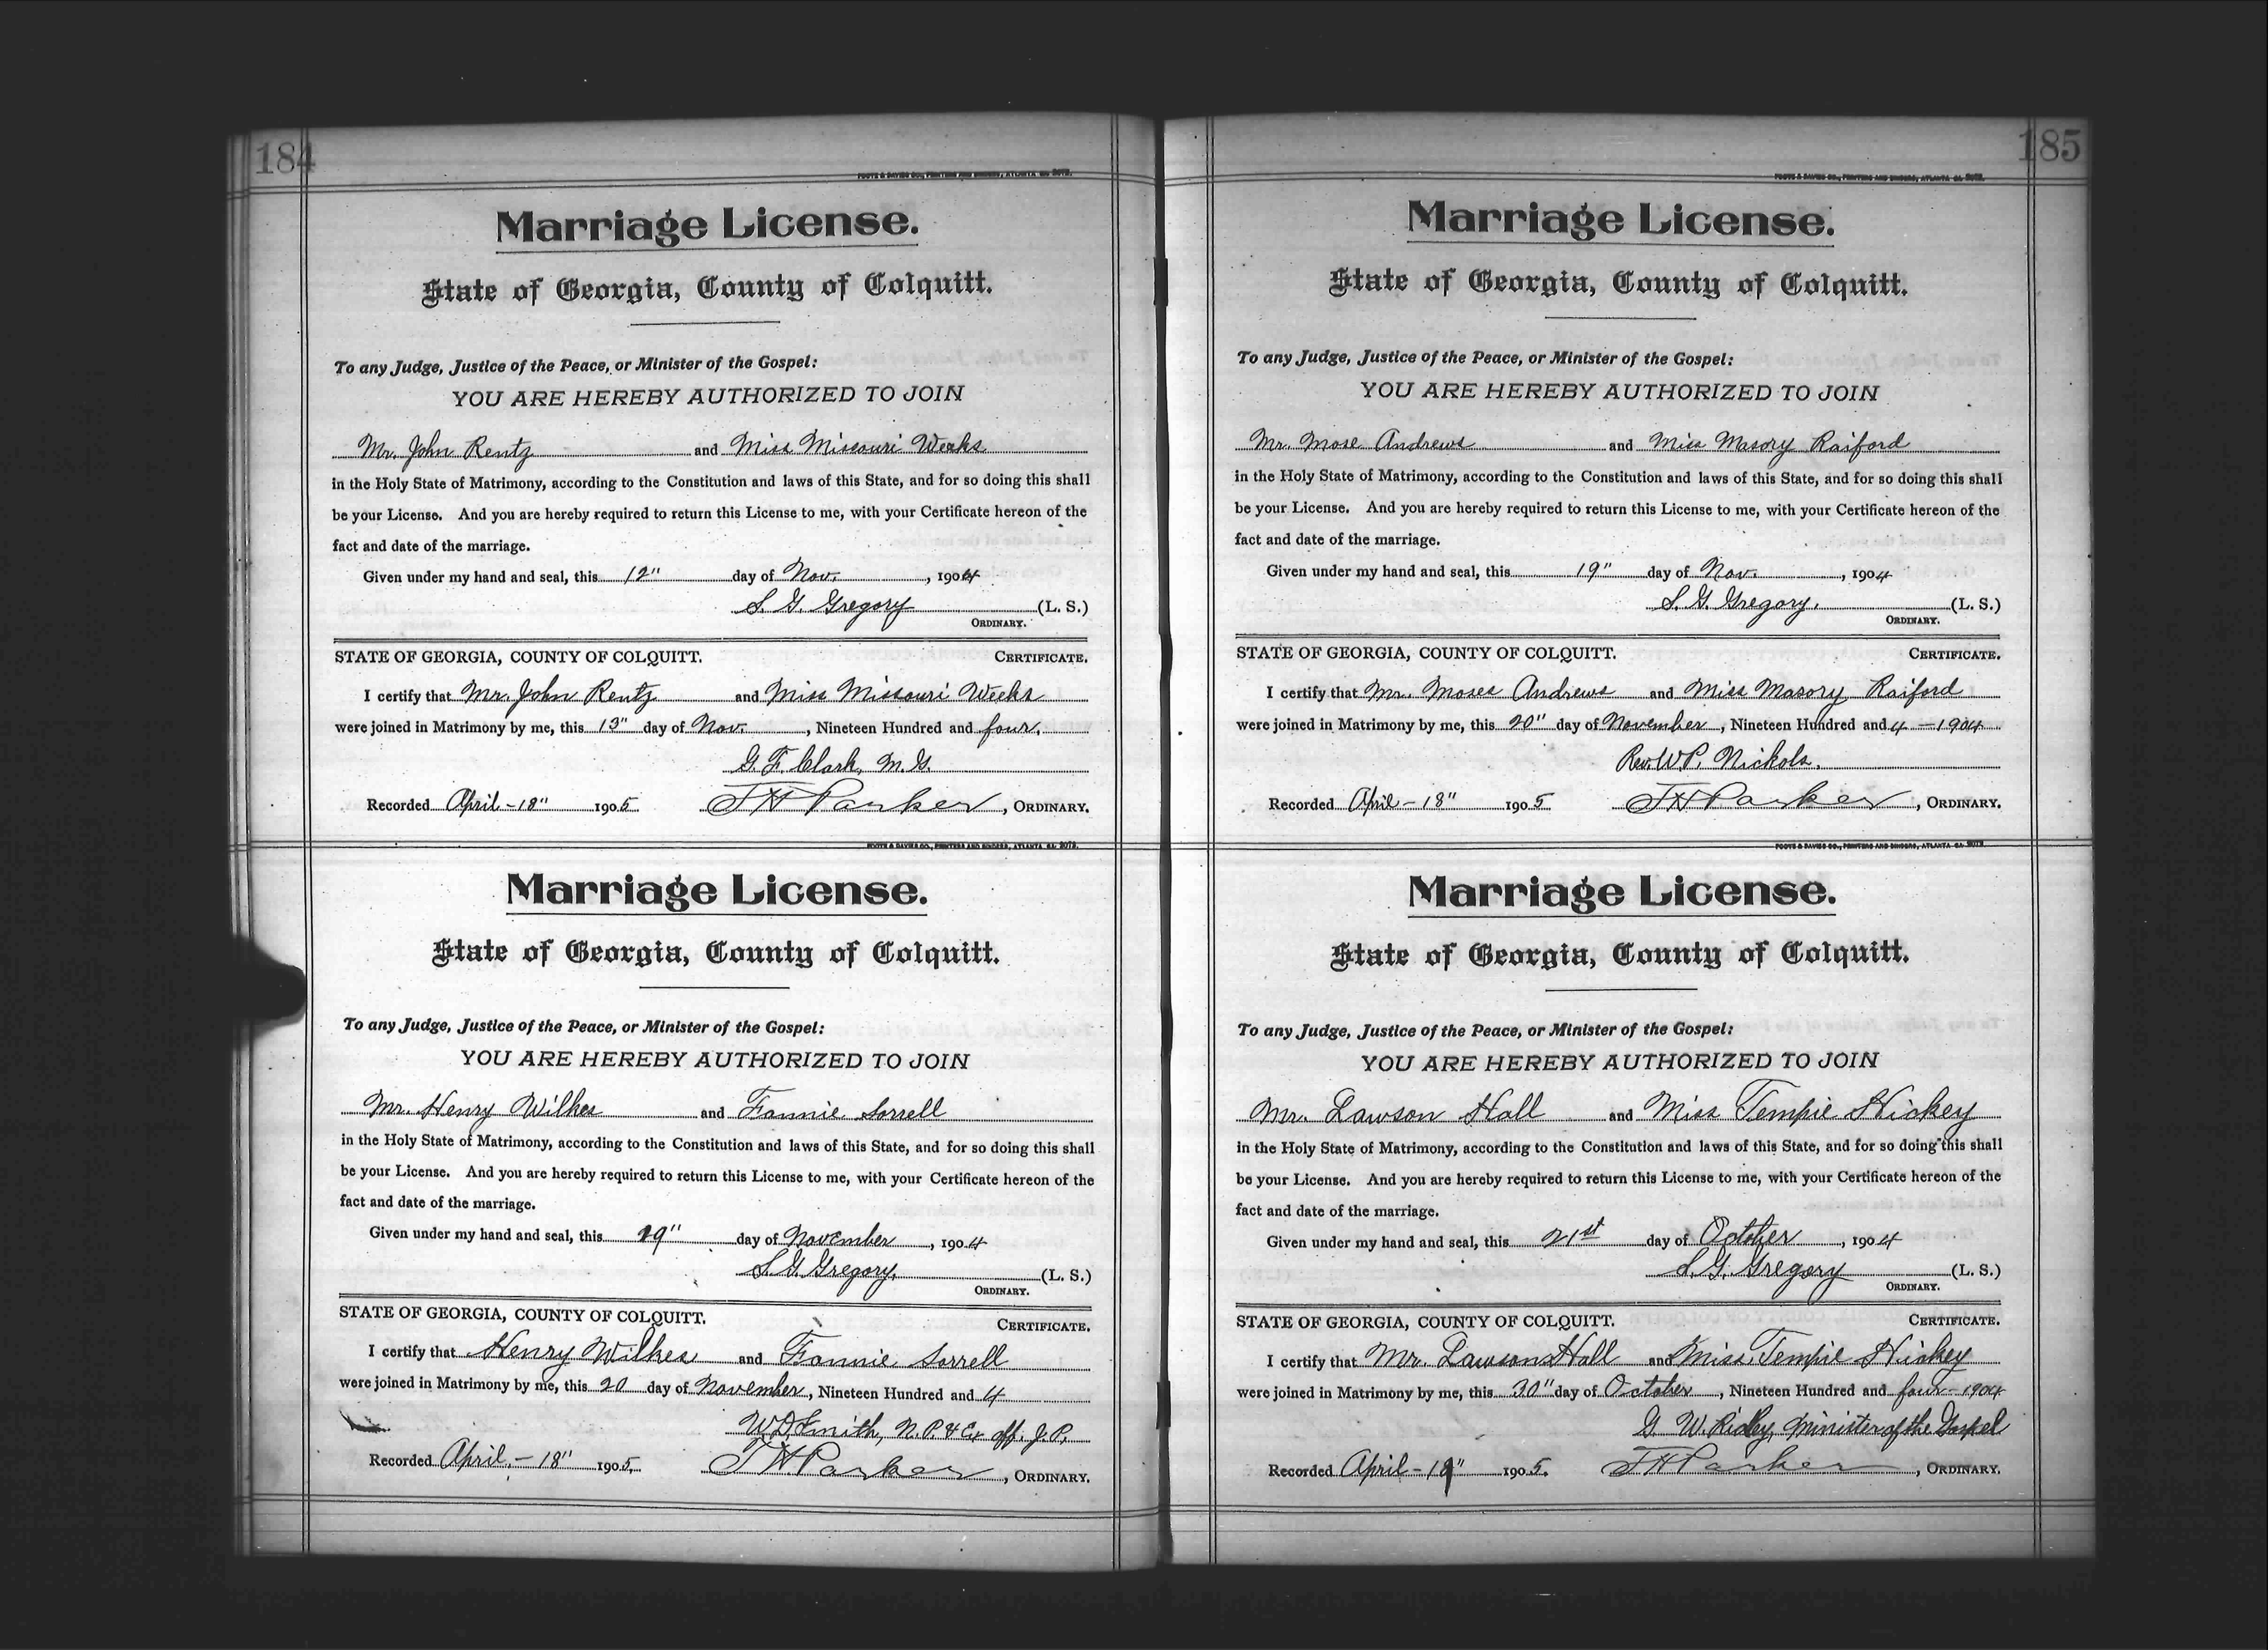 184
FOOTE & DAVIES CO., PRINTERS AND BINDERS, ATLANTA GA. 2072.
Marriage License.
State of Georgia, County of Colquitt.
To any Judge, Justice of the Peace, or Minister of the Gospel:
YOU ARE HEREBY AUTHORIZED TO JOIN
Mr. John Rentz and Miss Missouri Weeks
in the Holy State of Matrimony, according to the Constitution and laws of this State, and for so doing this shall
be your License. And you are hereby required to return this License to me, with your Certificate hereon of the
fact and date of the marriage.
Given under my hand and seal, this 12" day of Nov. , 1904
S. G. Gregory (L. S.)
ORDINARY.
STATE OF GEORGIA, COUNTY OF COLQUITT. CERTIFICATE.
I certify that Mr. John Rentz and Miss Missouri Weeks
were joined in Matrimony by me, this 13" day of Nov. , Nineteen Hundred and four.
G. F. Clark, M. G.
Recorded April - 18" 1905 J H Parker , ORDINARY.
FOOTE & DAVIES CO., PRINTERS AND BINDERS, ATLANTA GA. 2072.
Marriage License.
State of Georgia, County of Colquitt.
To any Judge, Justice of the Peace, or Minister of the Gospel:
YOU ARE HEREBY AUTHORIZED TO JOIN
Mr. Henry Wilkes and Fannie Sorrell
in the Holy State of Matrimony, according to the Constitution and laws of this State, and for so doing this shall
be your License. And you are hereby required to return this License to me, with your Certificate hereon of the
fact and date of the marriage.
Given under my hand and seal, this 19" day of November , 1904
S. G. Gregory. (L. S.)
ORDINARY.
STATE OF GEORGIA, COUNTY OF COLQUITT. CERTIFICATE.
I certify that Henry Wilkes and Fannie Sorrell
were joined in Matrimony by me, this 20 day of November , Nineteen Hundred and 4
W. D. Smith, N. P. & Ex off. J. P.
Recorded April. - 18" 1905. J H Parker , ORDINARY.
185
FOOTE & DAVIES CO., PRINTERS AND BINDERS, ATLANTA GA. 2072.
Marriage License.
State of Georgia, County of Colquitt.
To any Judge, Justice of the Peace, or Minister of the Gospel:
YOU ARE HEREBY AUTHORIZED TO JOIN
Mr. Mose Andrews and Miss Masory Raiford
in the Holy State of Matrimony, according to the Constitution and laws of this State, and for so doing this shall
be your License. And you are hereby required to return this License to me, with your Certificate hereon of the
fact and date of the marriage.
Given under my hand and seal, this 19" day of Nov. , 1904
S. G. Gregory. (L. S.)
ORDINARY.
STATE OF GEORGIA, COUNTY OF COLQUITT. CERTIFICATE.
I certify that Mr. Moses Andrews and Miss Masory Raiford
were joined in Matrimony by me, this 20" day of November , Nineteen Hundred and 4 - 1904
Rev. W. P. Nichols.
Recorded April - 18" 1905 J H Parker , ORDINARY.
FOOTE & DAVIES CO., PRINTERS AND BINDERS, ATLANTA GA. 2072
Marriage License.
State of Georgia, County of Colquitt.
To any Judge, Justice of the Peace, or Minister of the Gospel:
YOU ARE HEREBY AUTHORIZED TO JOIN
Mr. Lawson Hall and Miss Tempie Hickey
in the Holy State of Matrimony, according to the Constitution and laws of this State, and for so doing this shall
be your License. And you are hereby required to return this License to me, with your Certificate hereon of the
fact and date of the marriage.
Given under my hand and seal, this 21st day of October , 1904
S. G. Gregory (L. S.)
ORDINARY.
STATE OF GEORGIA, COUNTY OF COLQUITT. CERTIFICATE.
I certify that Mr. Lawson Hall and Miss Tempie Hickey
were joined in Matrimony by me, this 30" day of October , Nineteen Hundred and four - 1904
G. W. Ridley, Minister of the Gospel
Recorded April - 19" 1905. J H Parker , ORDINARY.